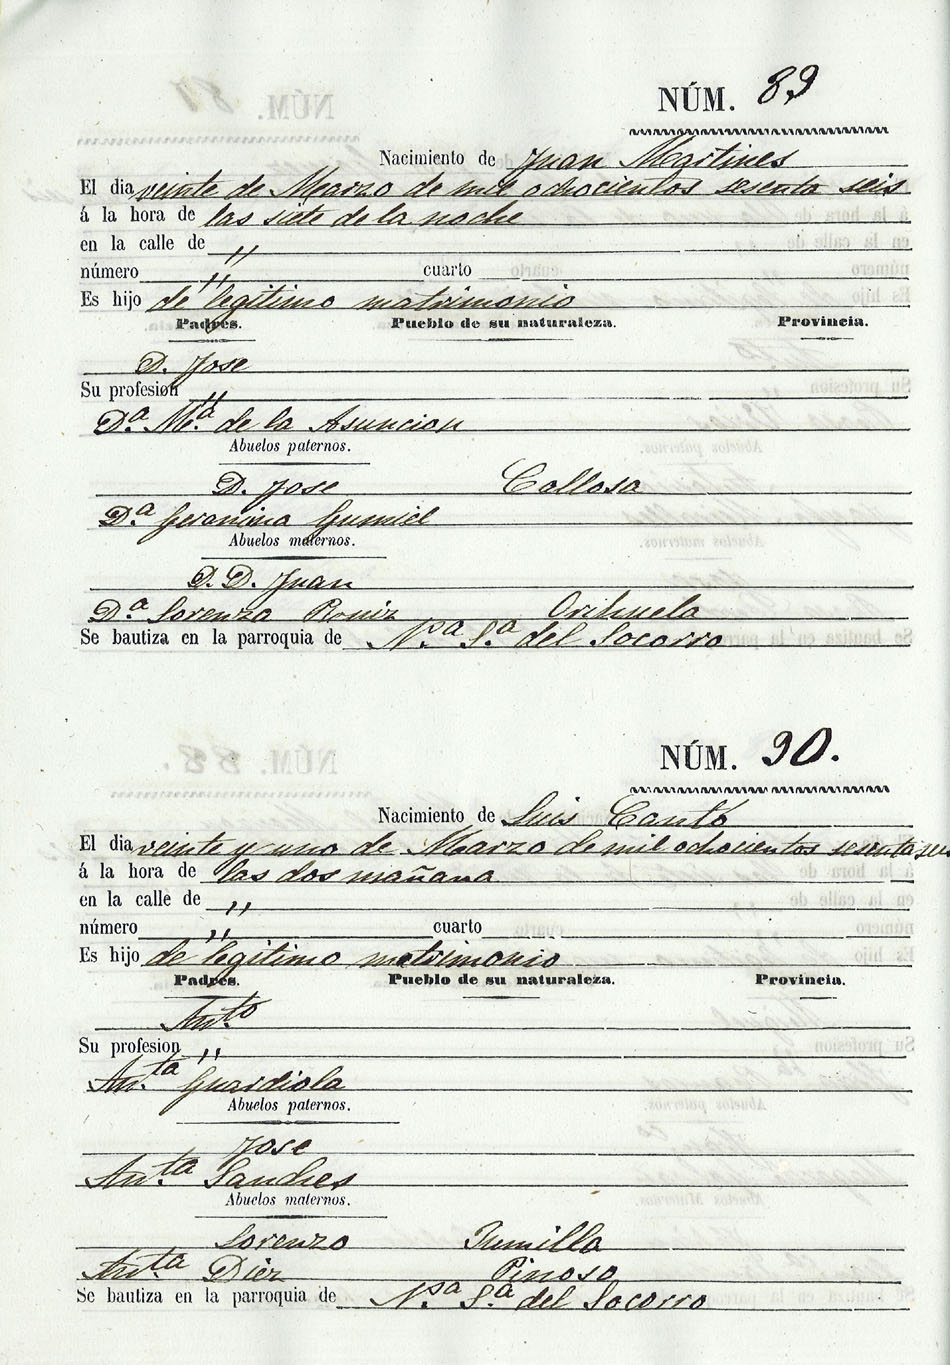 NÚM. 89
Nacimiento de Juan Martines
El dia veinte de Marzo de mil ochocientos sesenta seis
á la hora de las siete de la noche
en la calle de "
número " cuarto
Es hijo de legitimo matrimonio
Padres. Pueblo de su naturaleza. Provincia.
D. Jose
Su profesion "
D.ª M.ª de la Asuncion
Abuelos paternos.
D. Jose Callosa
D.ª Geronima Gumiel
Abuelos maternos.
D. D. Juan
D.ª Lorenza Orihuela
Se bautiza en la parroquia de N.ª S.ª del Socorro
NÚM. 90.
Nacimiento de Luis Cantó
El dia veinte y uno de Marzo de mil ochocientos sesenta seis
á la hora de las dos mañana
en la calle de "
número " cuarto
Es hijo de legitimo matrimonio
Padres. Pueblo de su naturaleza. Provincia.
Ant.º
Su profesion "
An.ta Guardiola
Abuelos paternos.
Jose
An.ta Sanches
Abuelos maternos.
Lorenzo Jumilla
An.ta Diez Pinoso
Se bautiza en la parroquia de N.ª S.ª del Socorro